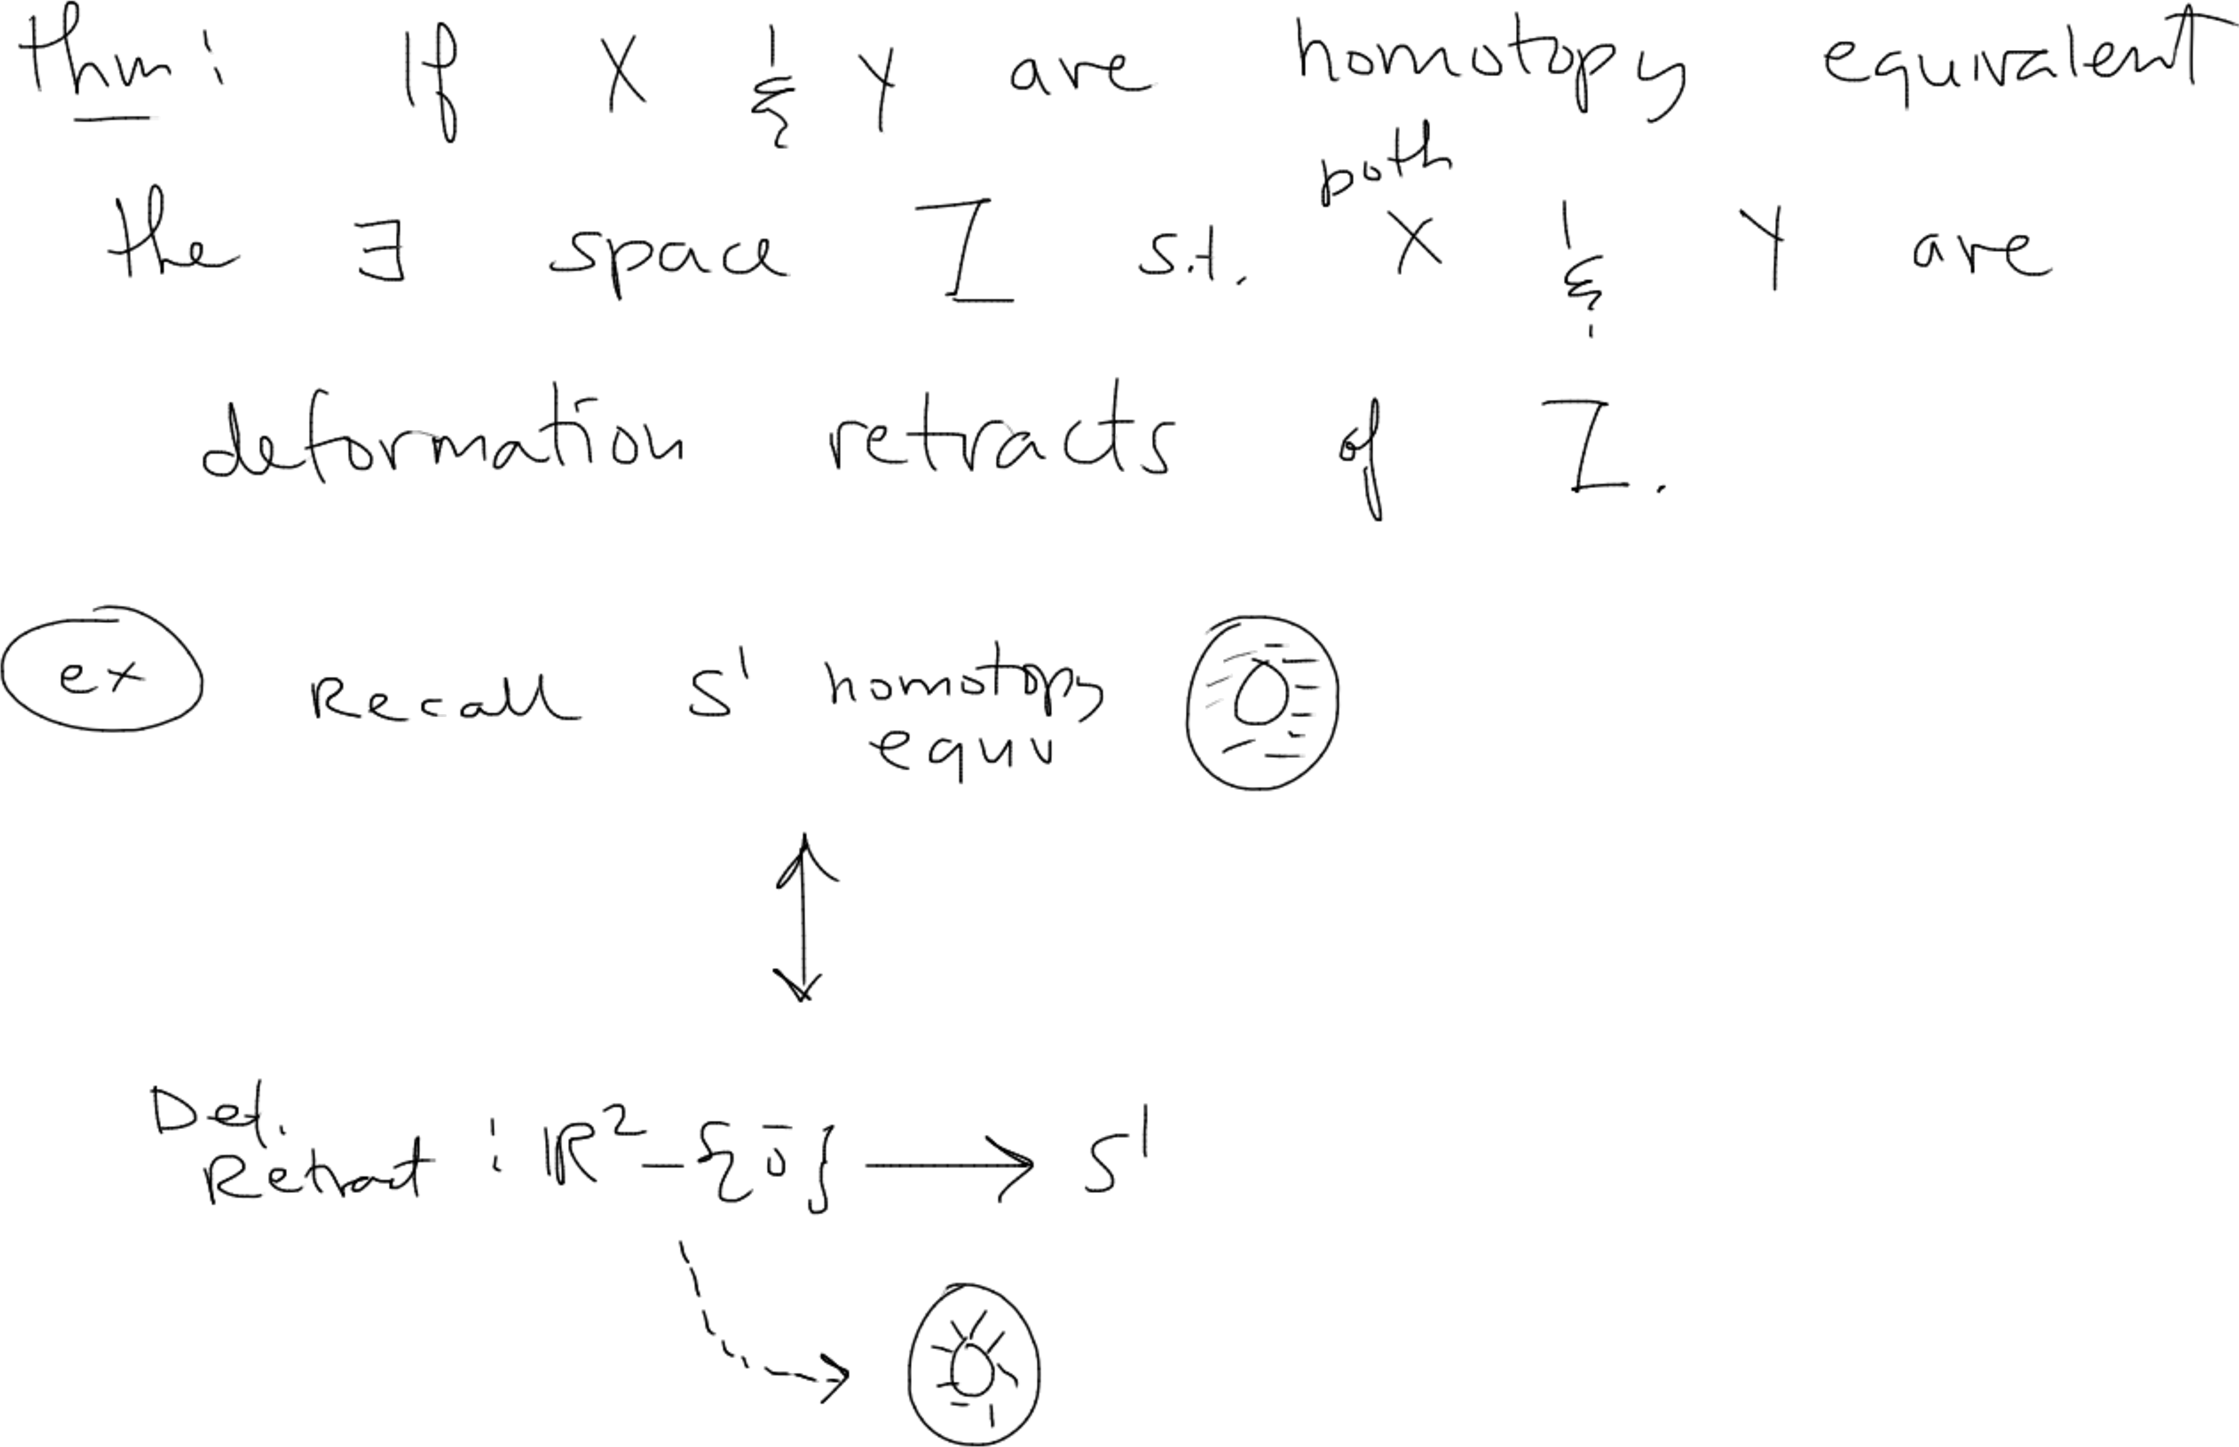 thm: If X & Y are homotopy equivalent
both
the ∃ space Z s.t. X & Y are
deformation retracts of Z.
ex Recall S¹ homotopy
equv
Def.
Retract : ℝ² - {0̄} ⟶ S¹